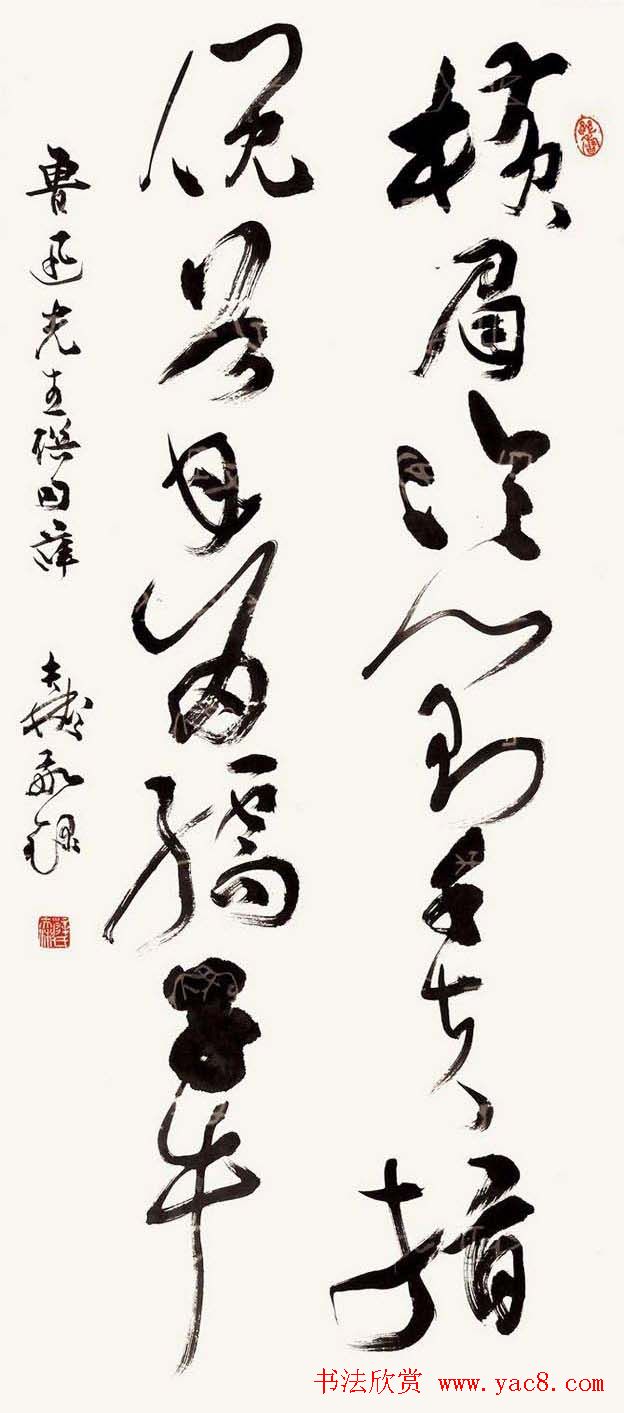 横眉冷對千夫指
俛首甘為孺子牛
魯迅先生
书法欣赏 www.yac8.com